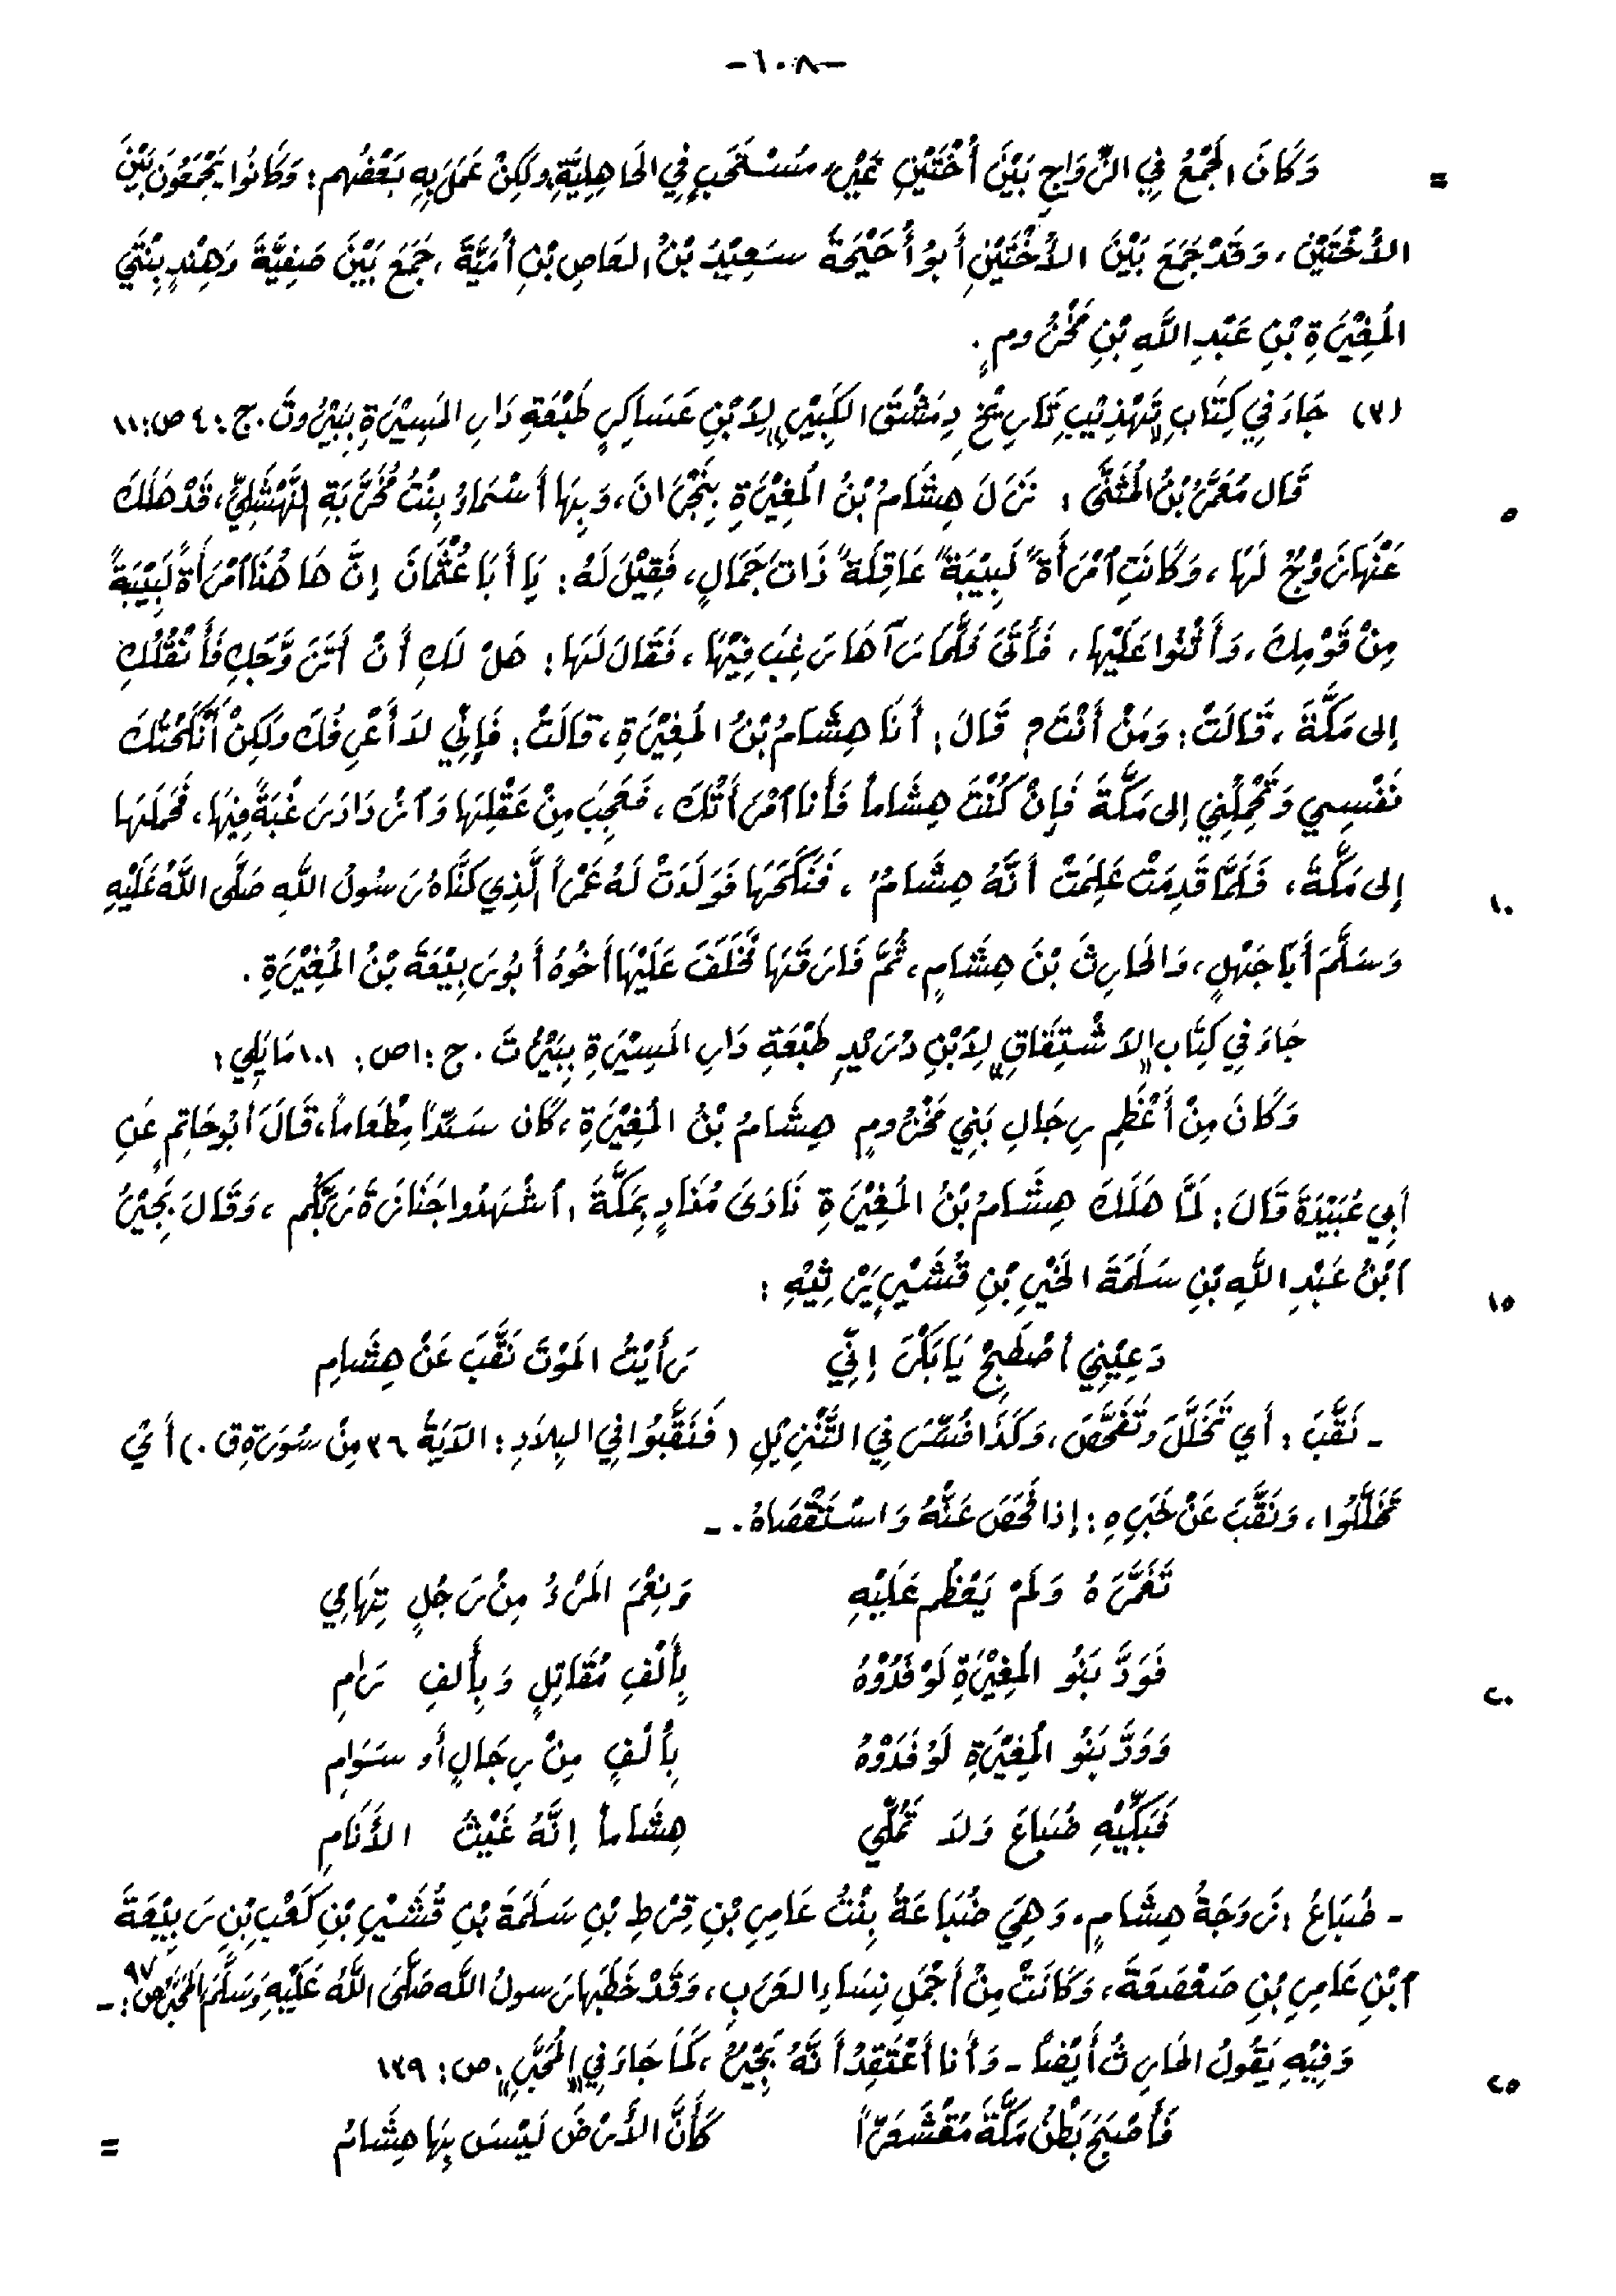 -٦٠٨-
= وَكَانَ الجَمْعُ فِي الزَّوَاجِ بَيْنَ أُخْتَيْنِ غَيْرَ مُسْتَحَبٍ فِي الجَاهِلِيَّةِ، ولكِنْ عَمَلَ بِهِ بَعْضُهم: وَكَانُوا يَجْمَعُونَ بَيْنَ
الأُخْتَيْنِ، وَقَدْ جَمَعَ بَيْنَ الأُخْتَيْنِ أَبُو أُحَيْحَةَ سَعِيْدُ بْنُ العَاصِ بْنِ أُمَيَّةَ، جَمَعَ بَيْنَ صَفِيَّةَ وَهِنْدٍ بِنْتَي
المُغِيْرَةِ بْنِ عَبْدِ اللَّهِ بْنِ مَخْزُومٍ.
(٣) جَاءَ فِي كِتَابِ «تَهْذِيْبِ تَارِيْخِ دِمَشْقَ الكَبِيْرِ» لِابْنِ عَسَاكِرٍ طَبْعَةِ دَارِ المَسِيْرَةِ بِبَيْرُوتَ. ج: ٤ ص: ١١
قَال مَعْمَرُ بْنُ المُثَنَّى: نَزَلَ هِشَامُ بْنُ المُغِيْرَةِ بِنَجْرَانَ، وَبِهَا أَسْمَاءُ بِنْتُ مُخَرَّبَةِ النَّهْشَلِيِّ، قَدْ هَلَكَ ٥
عَنْهَا زَوْجٌ لَهَا، وَكَانَتِ ٱمْرَأَةً لَبِيْبَةً عَاقِلَةً ذَاتَ جَمَالٍ، فَقِيْلَ لَهُ: يَا أَبَا عُثْمَانَ إِنَّ هَا هُنَا ٱمْرَأَةً لَبِيْبَةً
مِنْ قَوْمِكَ، وَأَثْنُوا عَلَيْهَا، فَأَتَى فَلَمَّا رَآهَا رَغِبَ فِيْهَا، فَقَالَ لَهَا: هَلْ لَكِ أَنْ أَتَزَوَّجَكِ فَأَنْقُلُكِ
إلى مَكَّةَ، قَالَتْ: وَمَنْ أَنْتَ؟ قَالَ: أَنَا هِشَامُ بْنُ المُغِيْرَةِ، قَالَتْ: فَإِنِّي لاَ أَعْرِفُكَ ولكِنْ أَنْكَحْتُكَ
نَفْسِي وَتَحْمِلُنِي إلى مَكَّةَ فَإِنْ كُنْتَ هِشَاماً فَأَنا ٱمْرَأَتُكَ، فَعَجِبَ مِنْ عَقْلِهَا وَٱزْدَادَ رَغْبَةً فِيْهَا، فَحَمَلَهَا
إلى مَكَّةَ، فَلَمَّا قَدِمَتْ عَلِمَتْ أَنَّهُ هِشَامٌ، فَنَكَحَهَا فَوَلَدَتْ لَهُ عَمْراً الَّذِي كَنَّاهُ رَسُولُ اللهِ صَلَّى اللَّهُ عَلَيْهِ ١٠
وَسَلَّمَ أَبَا جَهْلٍ، وَالحَارِثَ بْنَ هِشَامٍ، ثُمَّ فَارَقَهَا فَخَلَفَ عَلَيْهَا أَخُوهُ أَبُو رَبِيْعَةَ بْنُ المُغِيْرَةِ.
جَاءَ فِي كِتَابِ «الاشْتِقَاقِ» لِابْنِ دُرَيْدٍ طَبْعَةِ دَارِ المَسِيْرَةِ بِبَيْرُتَ. ج: ١ ص: ١٠١ مَا يَلِي:
وَكَانَ مِنْ أَعْظَمِ رِجَالِ بَنِي مَخْزُومٍ هِشَامُ بْنُ المُغِيْرَةِ، كَان سَيِّداً مِطْعَاماً، قَالَ أَبُو حَاتِمٍ عَنِ
أَبِي عُبَيْدَةَ قَالَ: لَمَّا هَلَكَ هِشَامُ بْنُ المُغِيْرَةِ نَادَى مُنَادٍ بِمَكَّةَ: ٱشْهَدُوا جَنَازَةَ رَبِّكُم، وَقَالَ بُجَيْرُ
ٱبْنُ عَبْدِ اللَّهِ بْنِ سَلَمَةَ الخَيْرِ بْنِ قُشَيْرٍ يَرْثِيْهِ: ١٥
دَعِيْنِي أَصْطَبِحْ يَا بَكْرَ إِنِّي رَأَيْتُ المَوْتَ نَقَّبَ عَنْ هِشَامِ
- نَقَّبَ: أَي تَخَلَّلَ وتَفَحَّصَ، وَكَذَا فُسِّرَ فِي التَّنْزِيْلِ (فَنَقَّبُوا فِي البِلاَدِ: الآيَةُ ٣٦ مِنْ سُورَةِ ق.) أَيْ
تَخَلَّلُوا، وَنَقَّبَ عَنْ خَبَرِهِ: إذا فَحَصَ عَنْهُ وَاسْتَقْصَاهُ. -
تَعَمَّرَهُ وَلَمْ يَعْظُم عَلَيْهِ وَنِعْمَ المَرْءُ مِنْ رَجُلٍ تِهَامِي
فَوَدَّ بَنُو المُغِيْرَةِ لَوْ فَدَوْهُ بِأَلْفِ مُقَاتِلٍ وَبِأَلفِ رَامِ ٢٠
وَوَدَّ بَنُو المُغِيْرَةِ لَوْ فَدَوْهُ بِأَلْفٍ مِنْ رِجَالٍ أَو سَوَامِ
فَبَكِّيْهِ ضُبَاعَ وَلاَ تَمُلِّي هِشَاماً إِنَّهُ غَيْثُ الأَنَامِ
- ضُبَاعُ: زَوَجَةُ هِشَامٍ. وَهِيَ ضُبَاعَةُ بِنْتُ عَامِرِ بْنِ قِرْطِ بْنِ سَلَمَةَ بْنِ قُشَيْرِ بْنِ كَعْبِ بْنِ رَبِيْعَةَ
ٱبْنِ عَامِرِ بْنِ صَعْصَعَةَ، وَكَانَتْ مِنْ أَجْمَلِ نِسَاءِ العَرَبِ، وَقَدْ خَطَبَها رَسولُ الله صَلَّى اللَّهُ عَلَيْهِ وَسَلَّمَ المُحَبَّر ص: ٩٧ -
وَفِيْهِ يَقُولُ الحَارِثُ أَيْضاً - وَأَنا أَعْتَقِدُ أَنَّهُ بُجَيْرٌ، كَمَا جَاءَ فِي «المُحَبَّرِ» ص: ١٣٩ ٢٥
فَأَصْبَحَ بَطْنُ مَكَّةَ مُقْشَعِرّاً كَأَنَّ الأَرْضَ لَيْسَ بِهَا هِشَامُ =